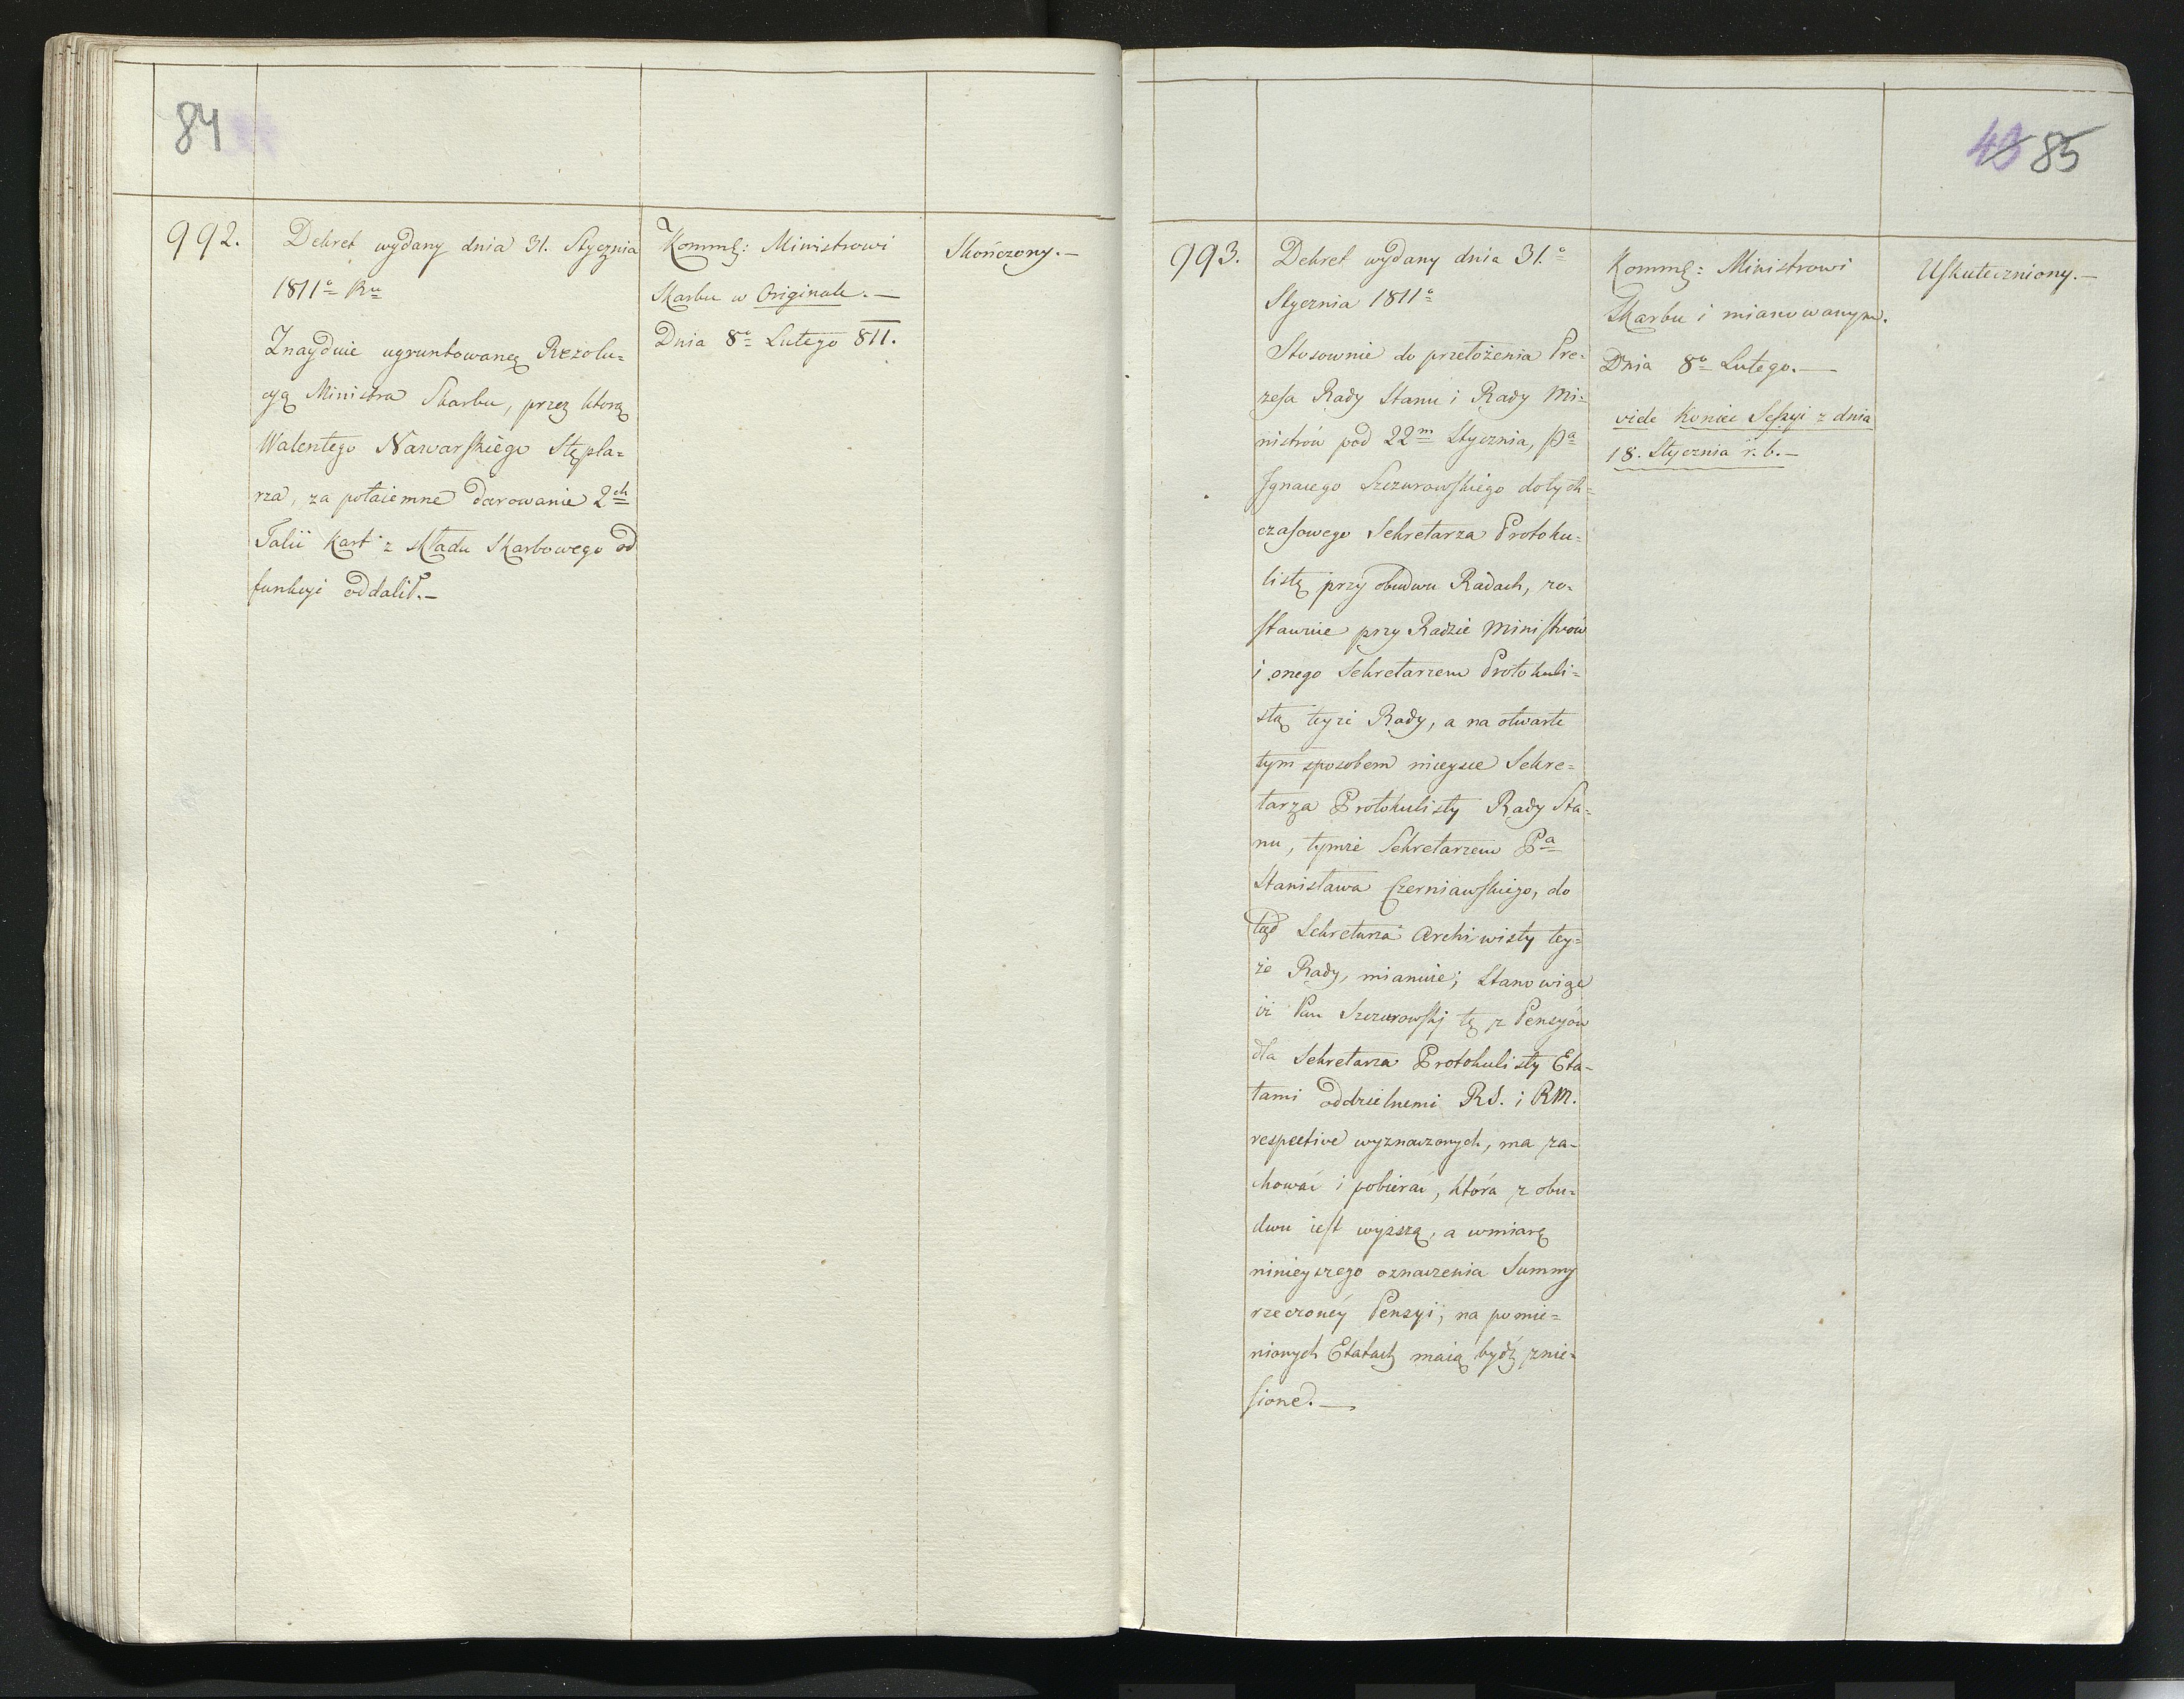 84
992.
Dekret wydany dnia 31. Stycznia
1811o Ru
Znayduie ugruntowaną Rezolu=
cyą Ministra Skarbu, przez którą
Walentego Nawarskiego Stępla=
rza, za potaiemne darowanie 2ch
Talii kart z składu Skarbowego od
funkcyi oddalił.—
Kommg: Ministrowi
Skarbu w Originale.—
Dnia 8o Lutego 811.
Skończony.—
43 85
993.
Dekret wydany dnia 31.o
Stycznia 1811o
Stosownie do przełożenia Pre=
zesa Rady Stanu i Rady Mi=
nistrów pod 22m Stycznia, Pa
Ignacego Szczurowskiego dotych=
czasowego Sekretarza Protoku=
listę przy obudwu Radach, zo=
stawuie przy Radzie Ministrów
i onego Sekretarzem Protokuli=
stą teyże Rady, a na otwarte
tym sposobem mieysce Sekre=
tarza Protokulisty Rady Sta=
nu, tymże Sekretarzem Pa
Stanisława Czerniawskiego, do
tąd Sekretarza Archiwisty tey=
że Rady, mianuie; Stanowiąc
iż Pan Szczurowski tę z Pensyów
dla Sekretarza Protokulisty Eta=
tami oddzielnemi RS. i RM.
respective wyznaczonych, ma za=
chować i pobierać, która z obu=
dwu iest wyższą, a wmiarę
ninieyszego oznaczenia Summy
rzeczoney Pensyi, na pomie=
nionych Etatach maią bydź znie=
sione.—
Kommg: Ministrowi
Skarbu i mianowanym.
Dnia 8o Lutego.—
vide koniec Sessyi z dnia
18. Stycznia r. b.—
Uskuteczniony.—